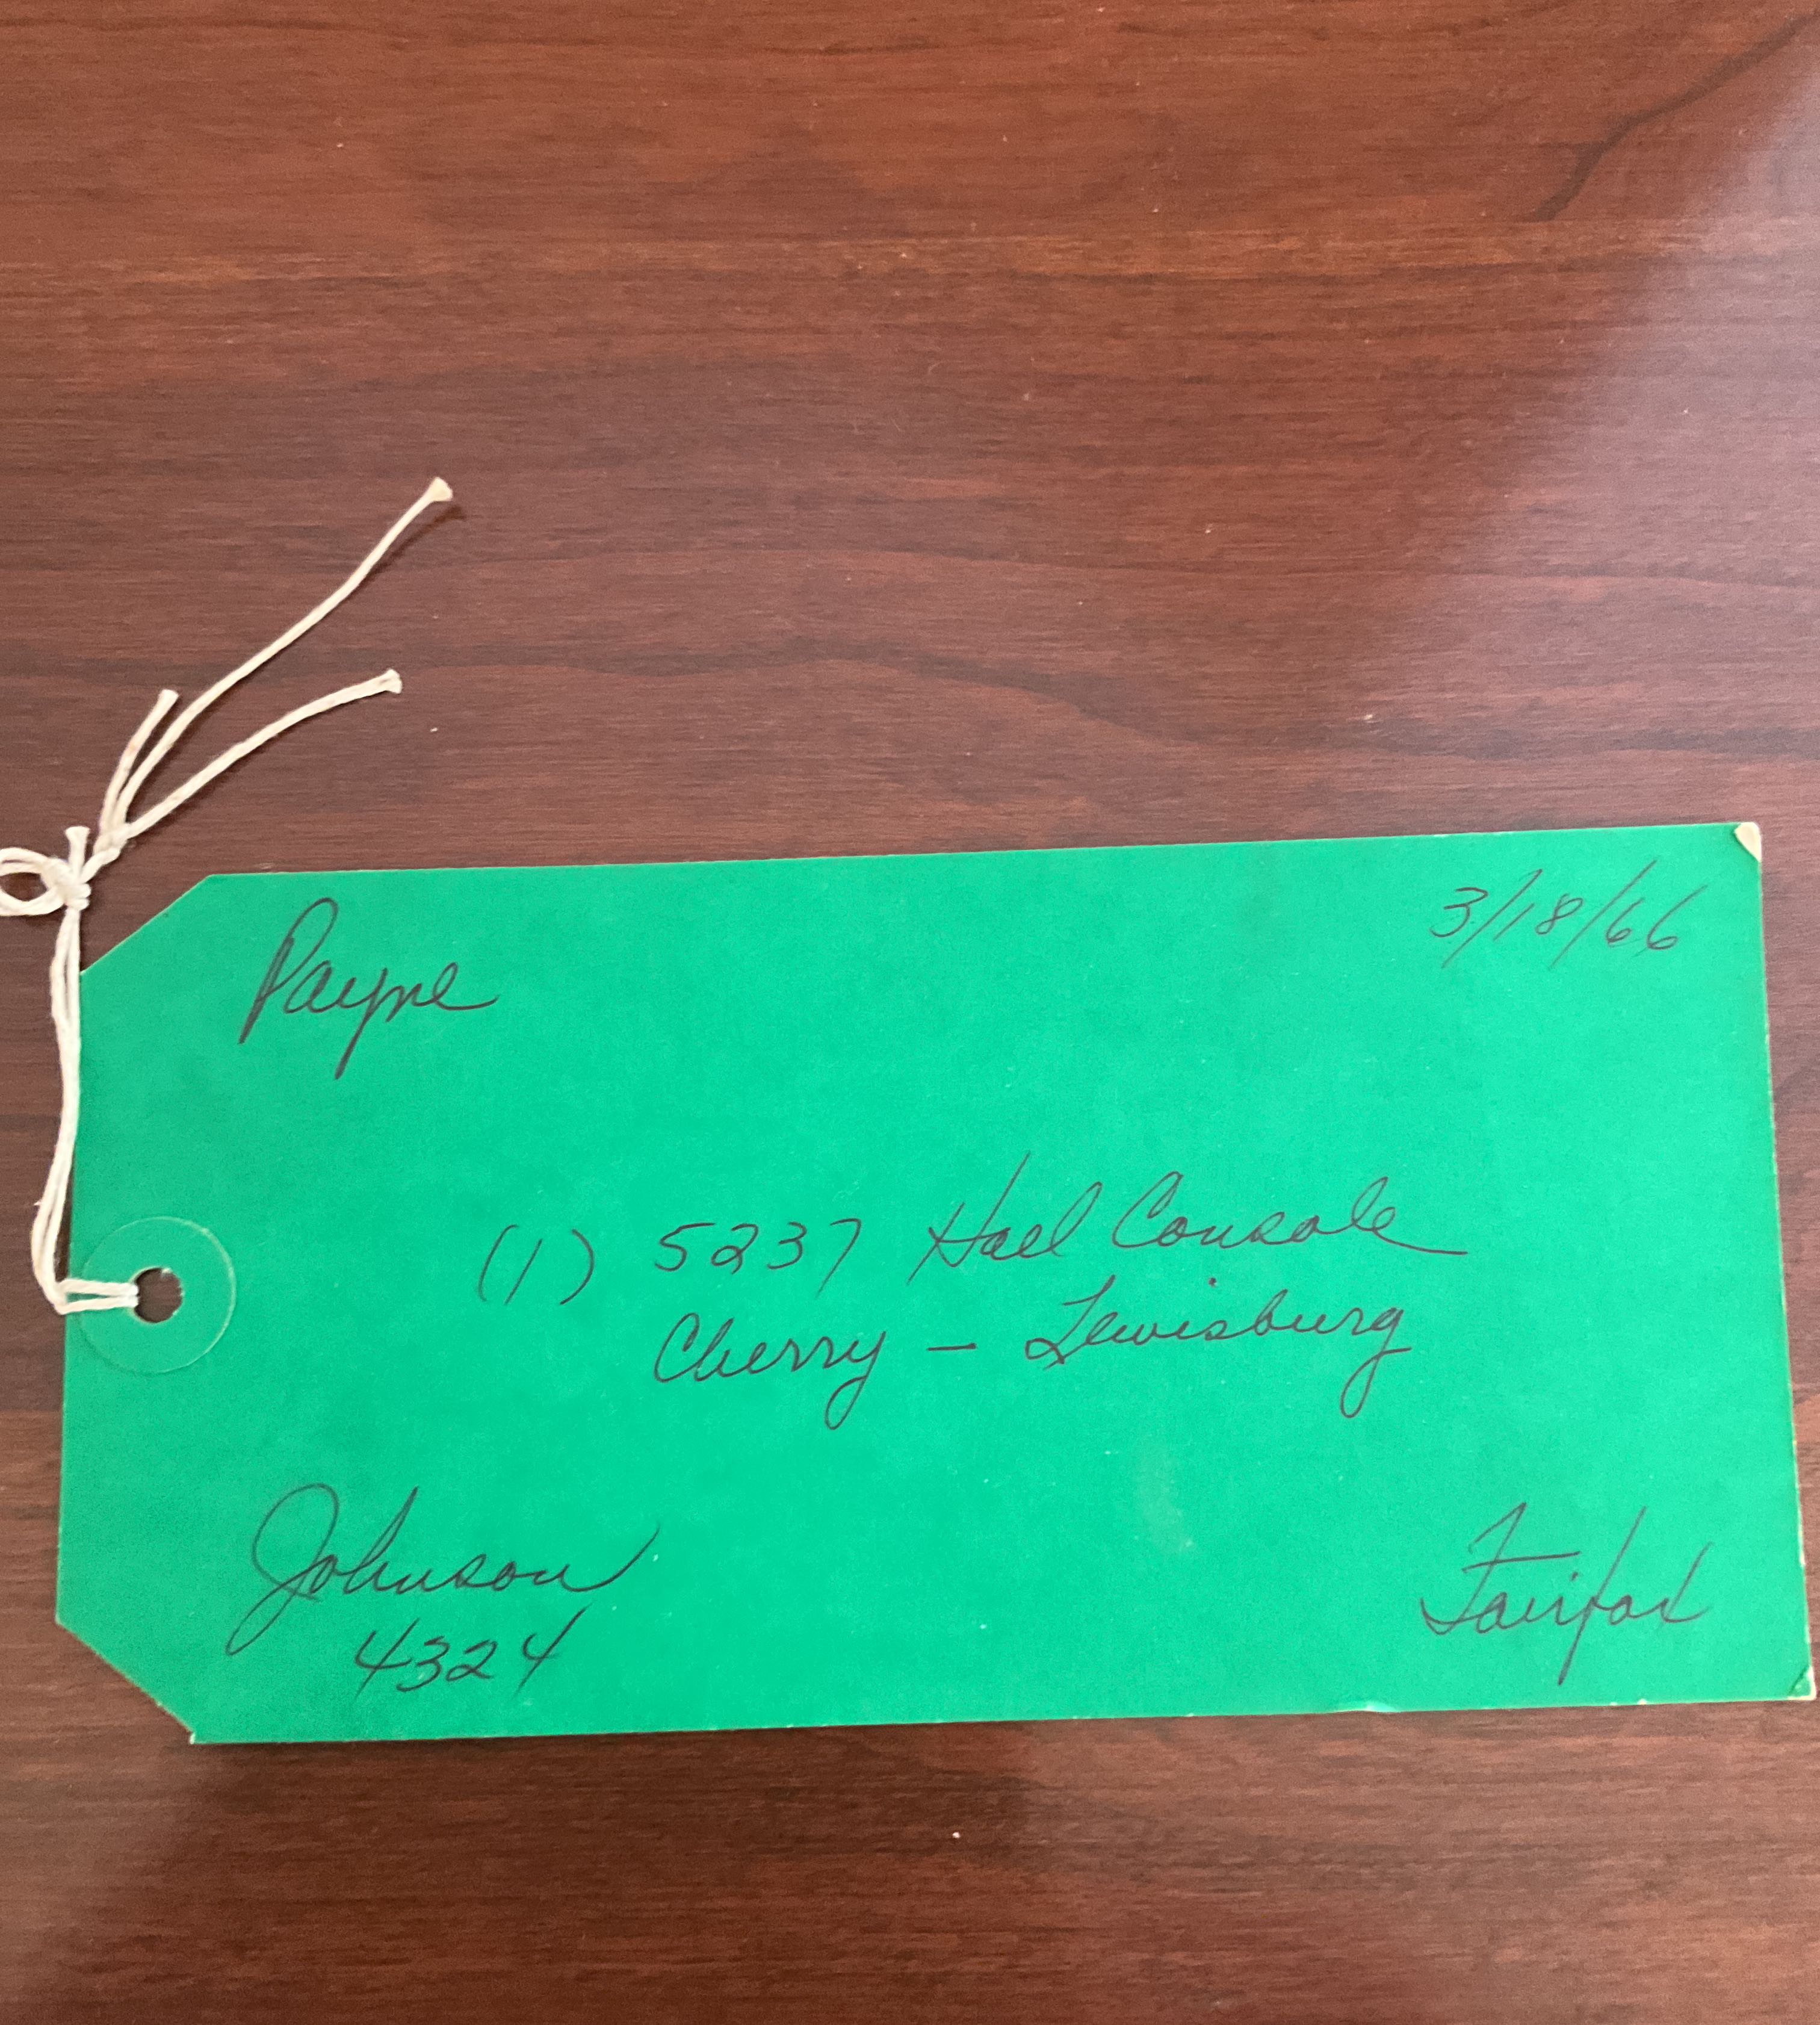 Payne
3/18/66
(1) 5237 Hall Console
Cherry – Lewisburg
Johnson
4324
Fairfax